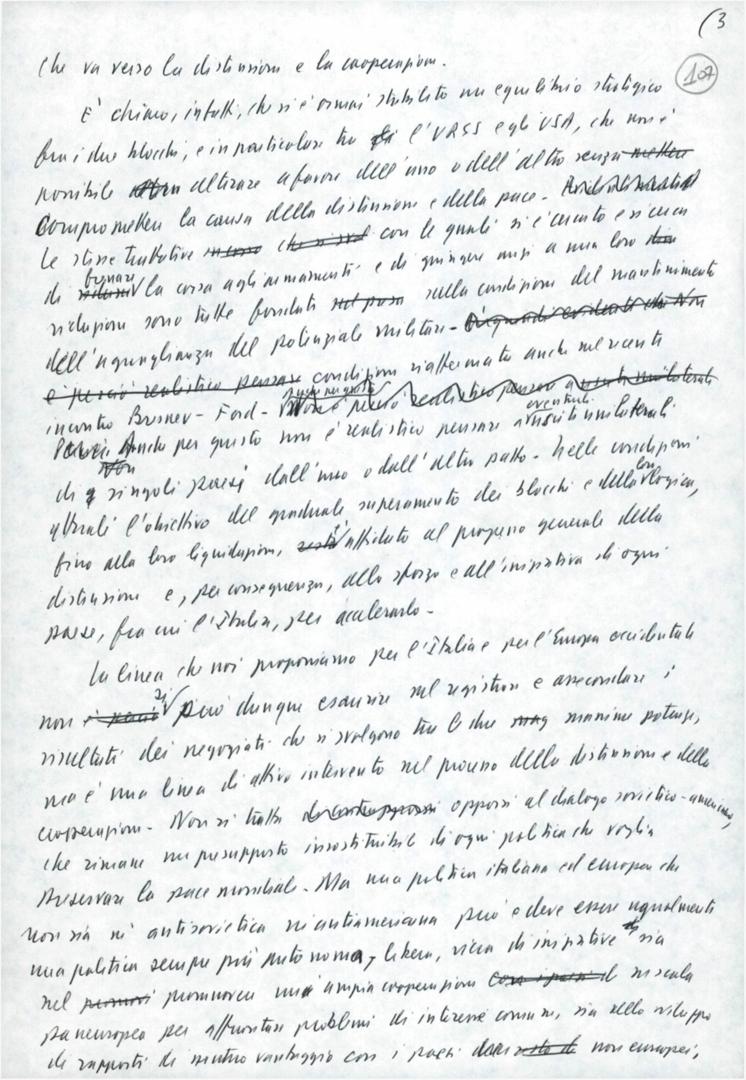 (3
107
che va verso la distensione e la cooperazione.
È chiaro, infatti, che si è ormai stabilito un equilibrio strategico
fra i due blocchi, e in particolare tra l'URSS e gli USA, che non è
possibile alterare a favore dell'uno o dell'altro senza mettere
compromettere la causa della distensione e della pace.
Le stesse trattative che si sono con le quali si è cercato e si cerca
di frenare la corsa agli armamenti e di giungere anzi a una loro
riduzione sono tutte fondate sul posso sulla condizione del mantenimento
dell'uguaglianza del potenziale militare - È quindi evidente che non
è perciò realistico pensare condizioni riaffermate anche nel recente
incontro Breznev - Ford - Non è perciò realistico pensare a uscite unilaterali
Anche per questo non è realistico pensare a eventuali uscite unilaterali
Non
di singoli paesi dall'uno o dall'altro patto - Nelle condizioni
attuali l'obiettivo del graduale superamento dei blocchi e della loro logica,
fino alla loro liquidazione, resta è affidato al progresso generale della
distensione e, per conseguenza, allo sforzo e all'iniziativa di ogni
paese, fra cui l'Italia, per accelerarlo -
La linea che noi proponiamo per l'Italia e per l'Europa occidentale
non si può dunque esaurire nel registrare e assecondare i
risultati dei negoziati che si svolgono tra le due massime potenze,
ma è una linea di attivo intervento nel processo della distensione e della
cooperazione - Non si tratta di contrapporsi opporsi al dialogo sovietico-americano,
che rimane un presupposto insostituibile di ogni politica che voglia
preservare la pace mondiale - Ma una politica italiana ed europea che
non sia né antisovietica né antiamericana può e deve essere ugualmente
una politica sempre più autonoma, libera, ricca di iniziative sia
nel promuovere un'ampia cooperazione su scala
paneuropea per affrontare problemi di interesse comune, sia nello sviluppo
di rapporti di mutuo vantaggio con i paesi non europei,